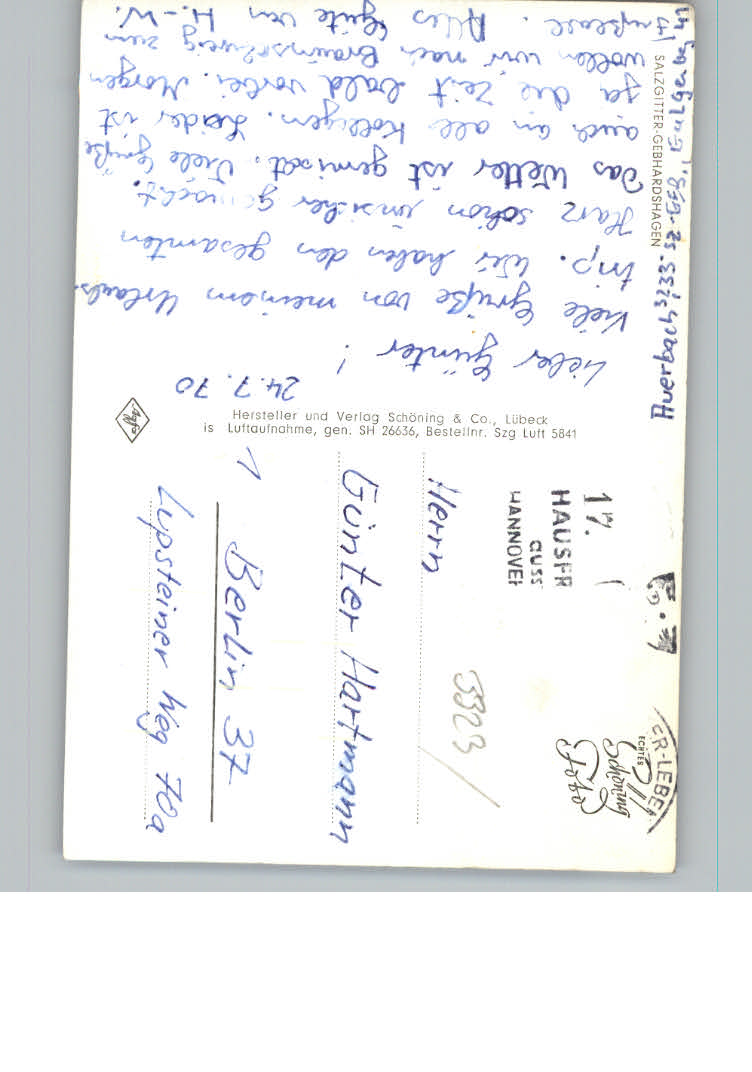 24.7.70
Lieber Günter!
Viele Grüße von meinem Urlaubs-
trip. Wir haben den gesamten
Harz schon unsicher gemacht.
Das Wetter ist gemischt. Viele Grüße
auch an alle Kollegen. Leider ist
ja die Zeit bald vorbei. Morgen
wollen wir nach Braunschweig zum
Fußball. Alles Gute von H.-W.
SALZGITTER-GEBHARDSHAGEN
Hersteller und Verlag Schöning & Co., Lübeck
is Luftaufnahme, gen. SH 26636, Bestellnr. Szg Luft 5841
Agfa
17.
HAUSER
GUSS
HANNOVE
ER-LEBE
ECHTES
Schöning
Foto
3323
Herrn
Günter Hartmann
1 Berlin 37
Lupsteiner Weg 70a